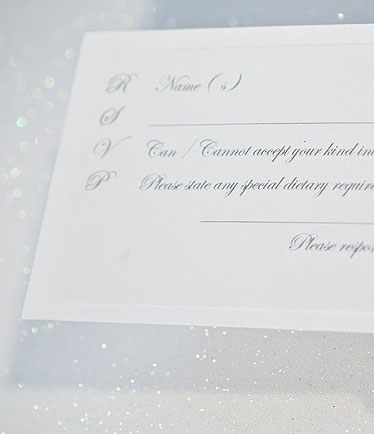 R Name (s)
S
V Can / Cannot accept your kind
P Please state any special dietary
Please